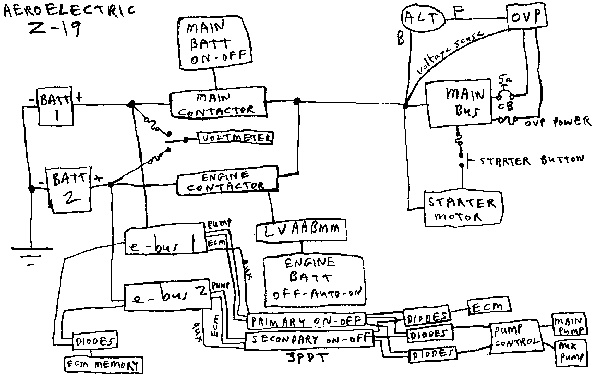 AEROELECTRIC
Z-19
MAIN
BATT
ON-OFF
ALT
F
OVP
B
VOLTAGE SENSE
- BATT +
1
MAIN
CONTACTOR
MAIN
BUS
5A
CB
OVP POWER
VOLTMETER
- BATT +
2
ENGINE
CONTACTOR
STARTER BUTTON
STARTER
MOTOR
LVAABMM
e-bus 1
PUMP
ECM
AUX
ENGINE
BATT
OFF-AUTO-ON
e-bus 2
PUMP
ECM
AUX
PRIMARY ON-OFF
SECONDARY ON-OFF
3PDT
DIODES
ECM
DIODES
DIODES
PUMP
CONTROL
MAIN
PUMP
AUX
PUMP
DIODES
ECM MEMORY